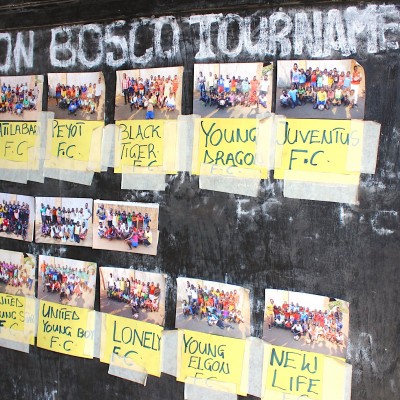 ON BOSCO TOURNAME
F.C
PEYOT
F.C.
BLACK
TIGER
F.C
YOUNG
DRAGO
JUVENTUS
F.C.
UNITED
F.C
UNITED
YOUNG BOY
F.C.
LONELY
F.C.
YOUNG
ELGON
F.C
NEW
LIFE
F.C